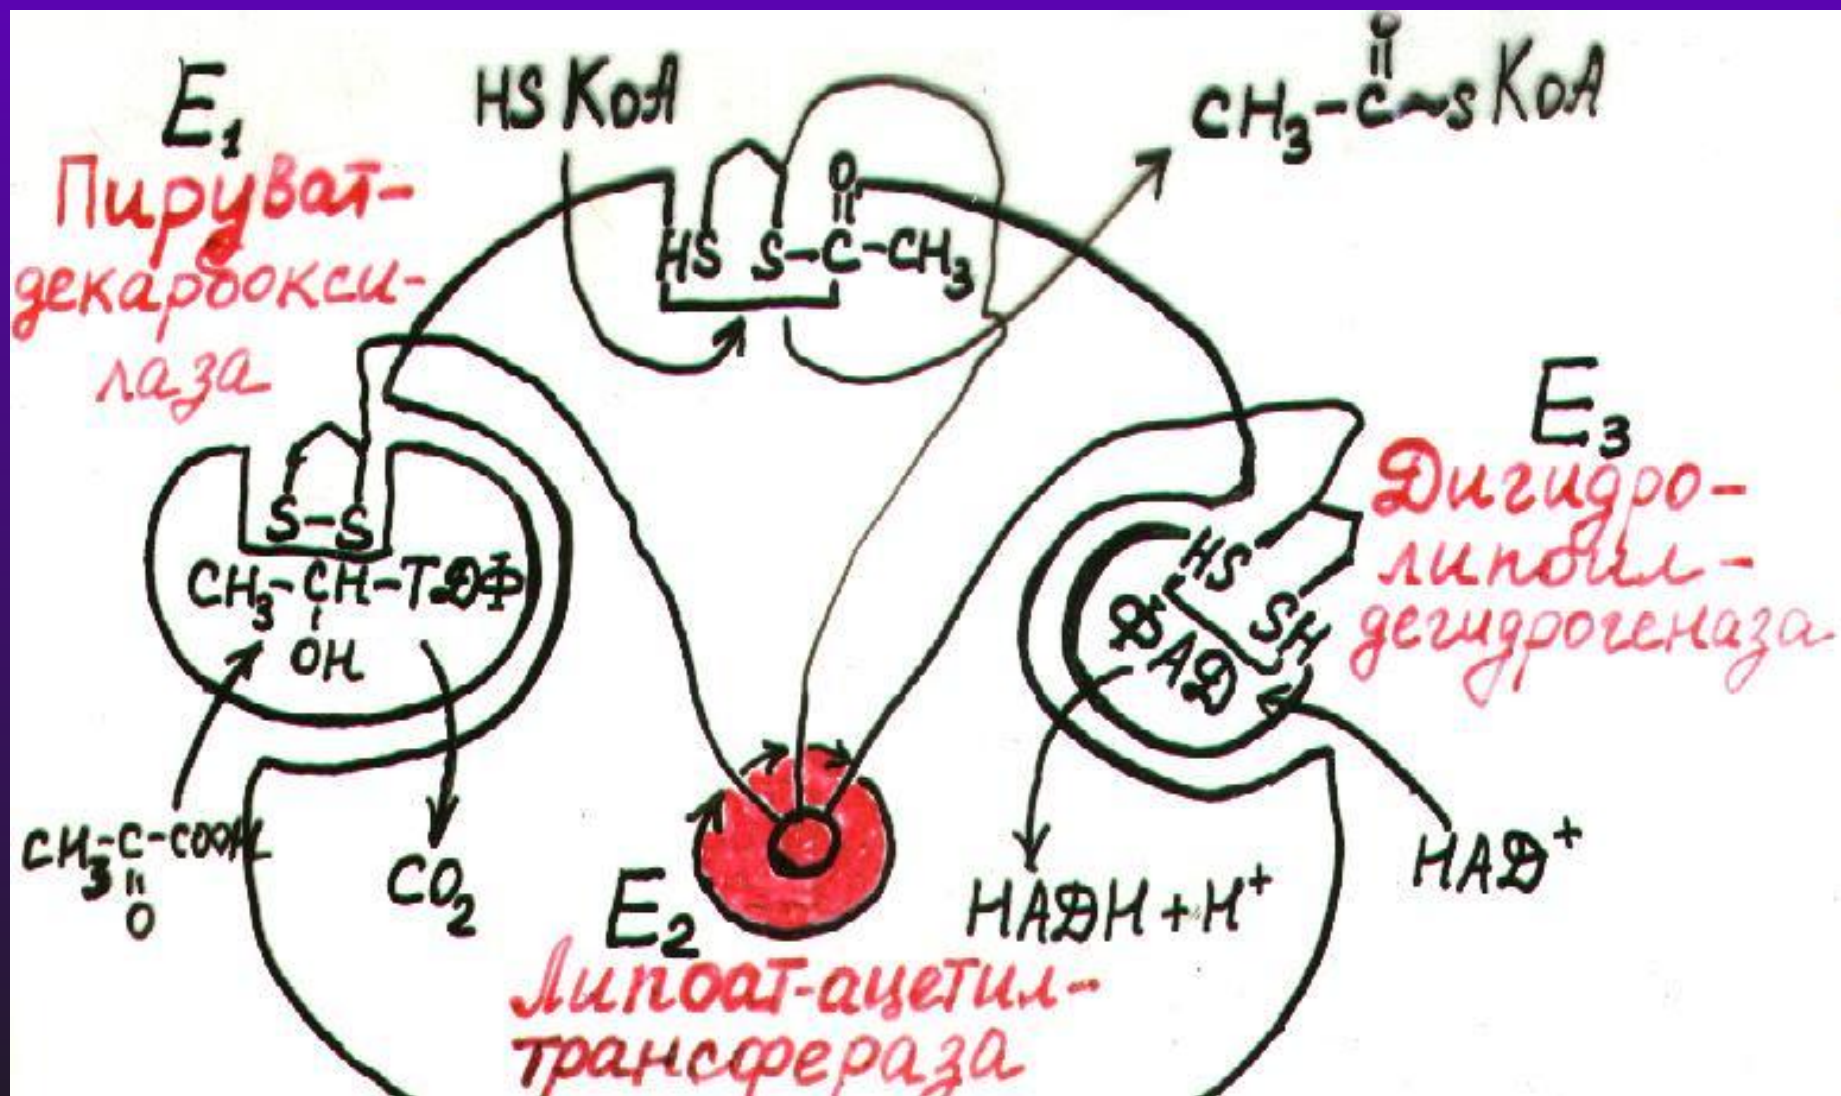 E₁
Пируват-
декарбокси-
лаза
HS КоА
O
CH₃-C~S КоА
O
HS S-C-CH₃
S-S
CH₃-CH-ТДФ
OH
CH₃-C-COOH
O
CO₂
E₂
Липоат-ацетил-
трансфераза
E₃
Дигидро-
липоил-
дегидрогеназа
HS
SH
ФАД
НАДН + Н⁺
НАД⁺